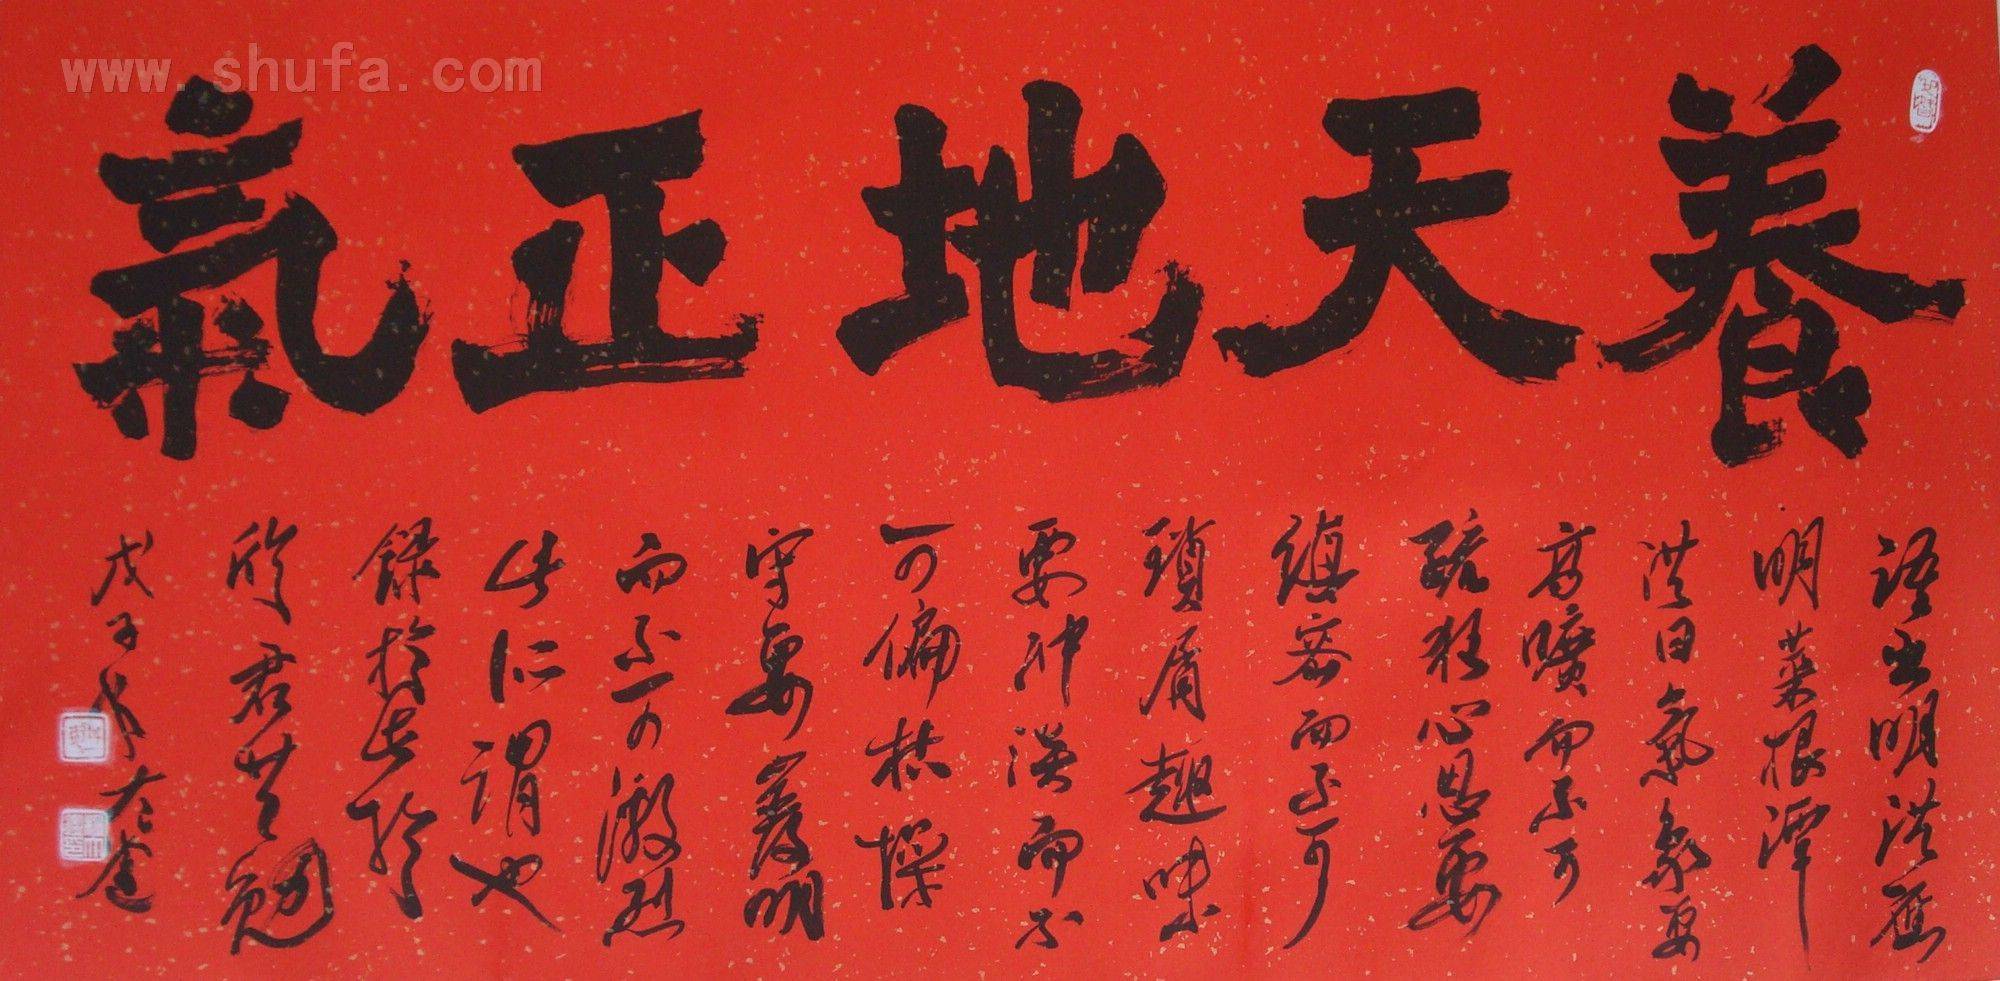 www.shufa.com
養天地正氣
語出明洪應
明菜根潭
洪曰氣象要
高曠而不可
疏狂心思要
縝密而不可
瑣屑趣味
要沖淡而不
可偏枯操
守要嚴明
而不可激烈
此仁謂也
錄於長於
欣君共勉
戊子年大奎